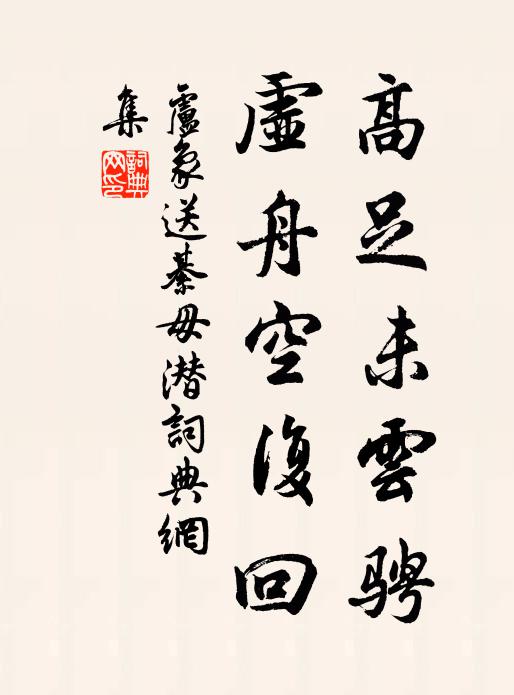 高足未雲骋
虛舟空復回
盧象送綦毋潛詞典網
集
詞典
网印